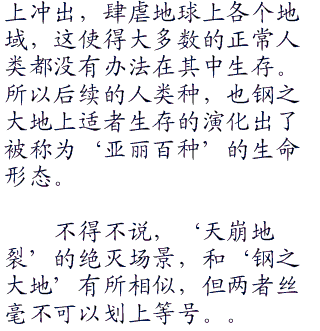 上冲出，肆虐地球上各个地
域，这使得大多数的正常人
类都没有办法在其中生存。
所以后续的人类种，也钢之
大地上适者生存的演化出了
被称为‘亚丽百种’的生命
形态。
不得不说，‘天崩地
裂’的绝灭场景，和‘钢之
大地’有所相似，但两者丝
毫不可以划上等号。。